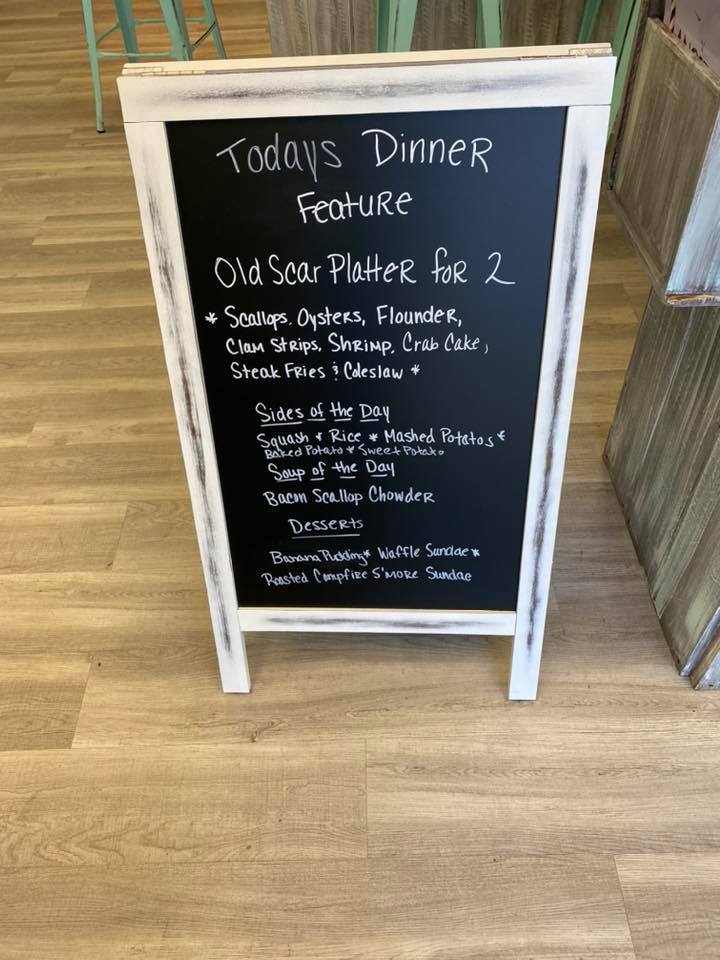 Todays Dinner
Feature
Old Scar Platter for 2
* Scallops, Oysters, Flounder,
Clam Strips, Shrimp, Crab Cake,
Steak Fries & Coleslaw *
Sides of the Day
Squash * Rice * Mashed Potatos *
Baked Potato * Sweet Potato
Soup of the Day
Bacon Scallop Chowder
Desserts
Banana Pudding * Waffle Sundae *
Roasted Campfire S'more Sundae